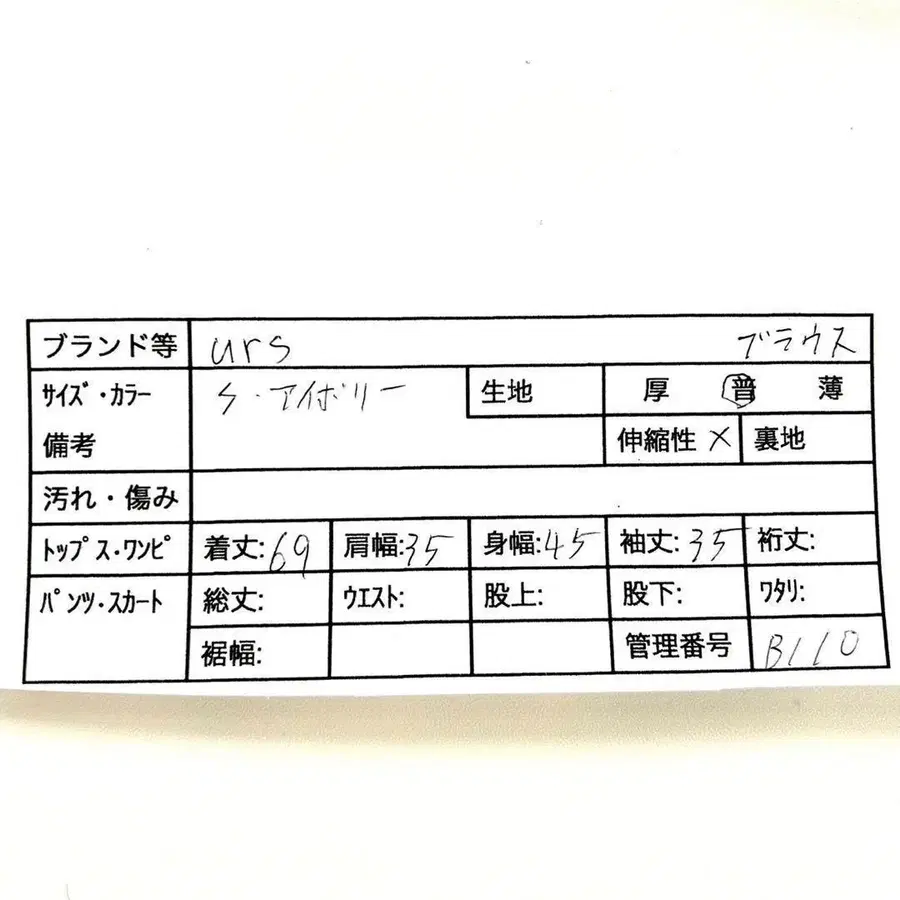 ブランド等 urs ブラウス
サイズ・カラー S・アイボリー 生地 厚 普 薄
備考 伸縮性 × 裏地
汚れ・傷み
トップス・ワンピ 着丈:69 肩幅:35 身幅:45 袖丈:35 裄丈:
パンツ・スカート 総丈: ウエスト: 股上: 股下: ワタリ:
裾幅: 管理番号 B110